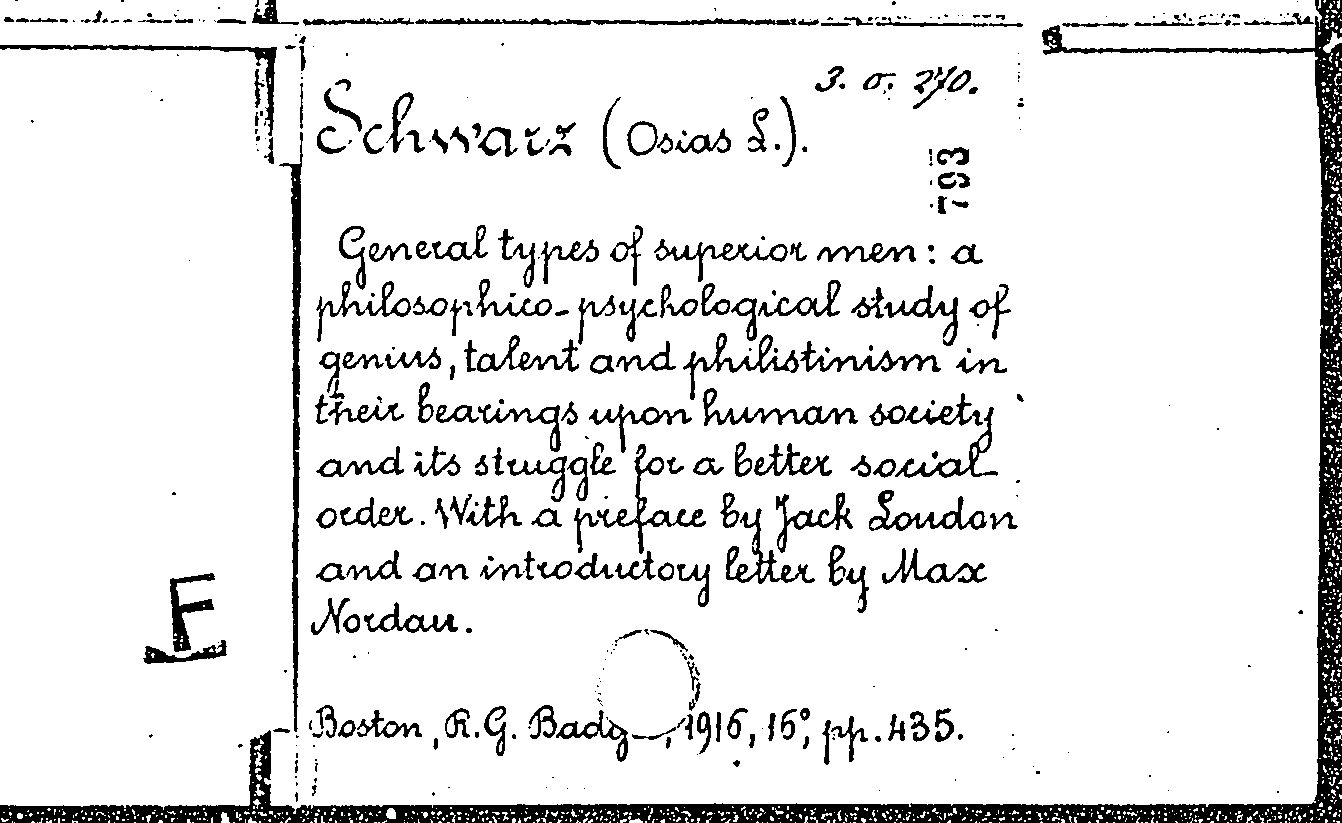 3. σ. 270.
Schwarz (Osias L.).
793
General types of superior men: a
philosophico-psychological study of
genius, talent and philistinism in
their bearings upon human society
and its struggle for a better social
order. With a preface by Jack London
and an introductory letter by Max
Nordau.
F
Boston, R.G. Badg , 1916, 16°, pp. 435.